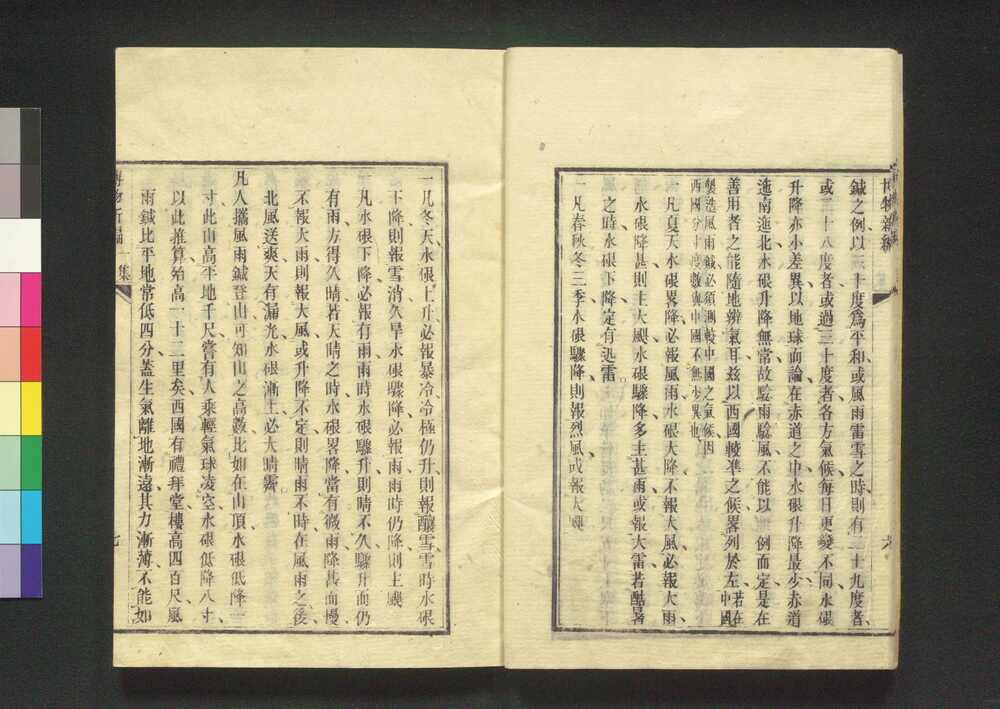 博物新編
鍼之例以三十度爲平和或風雨雷雪之時則有二十九度者
或二十八度者或過三十度者各方氣候每日更變不同水碾
升降亦小差異以地球而論在赤道之中水碾升降最少赤道
迤南迤北水碾升降無常故驗雨驗風不能以一例而定是在
善用者之能隨地辨氣耳茲以西國較準之候畧列於左若在中國
製造風雨鍼必須測較中國之氣候因
西國分寸度數與中國不無少異也
一凡夏天水碾畧降必報風雨水碾大降不報大風必報大雨
水碾降甚則主大颶水碾驟降多主甚雨或報大雷若酷暑
風之時水碾下降定有迅雷
一凡春秋冬三季水碾驟降則報烈風或報大颶
六
一凡冬天水碾上升必報暴冷冷極仍升則報釀雪雪時水碾
下降則報雪消久旱水碾驟降必報雨雨時仍降則主颶
一凡水碾下降必報有雨雨時水碾驟升則晴不久驟升而仍
有雨方得久晴若天晴之時水碾畧降當有微雨降甚而慢
不報大雨則報大風或升降不定則晴雨不時在風雨之後
北風送爽天有漏光水碾漸上必大晴霽
凡人攜風雨鍼登山可知山之高數比如在山頂水碾低降一
寸此山高平地千尺嘗有人乘輕氣球凌空水碾低降八寸
以此推算始高一十二里矣西國有禮拜堂樓高四百尺風
雨鍼比平地常低四分蓋生氣離地漸遠其力漸薄不能如
博物新編 一集
七